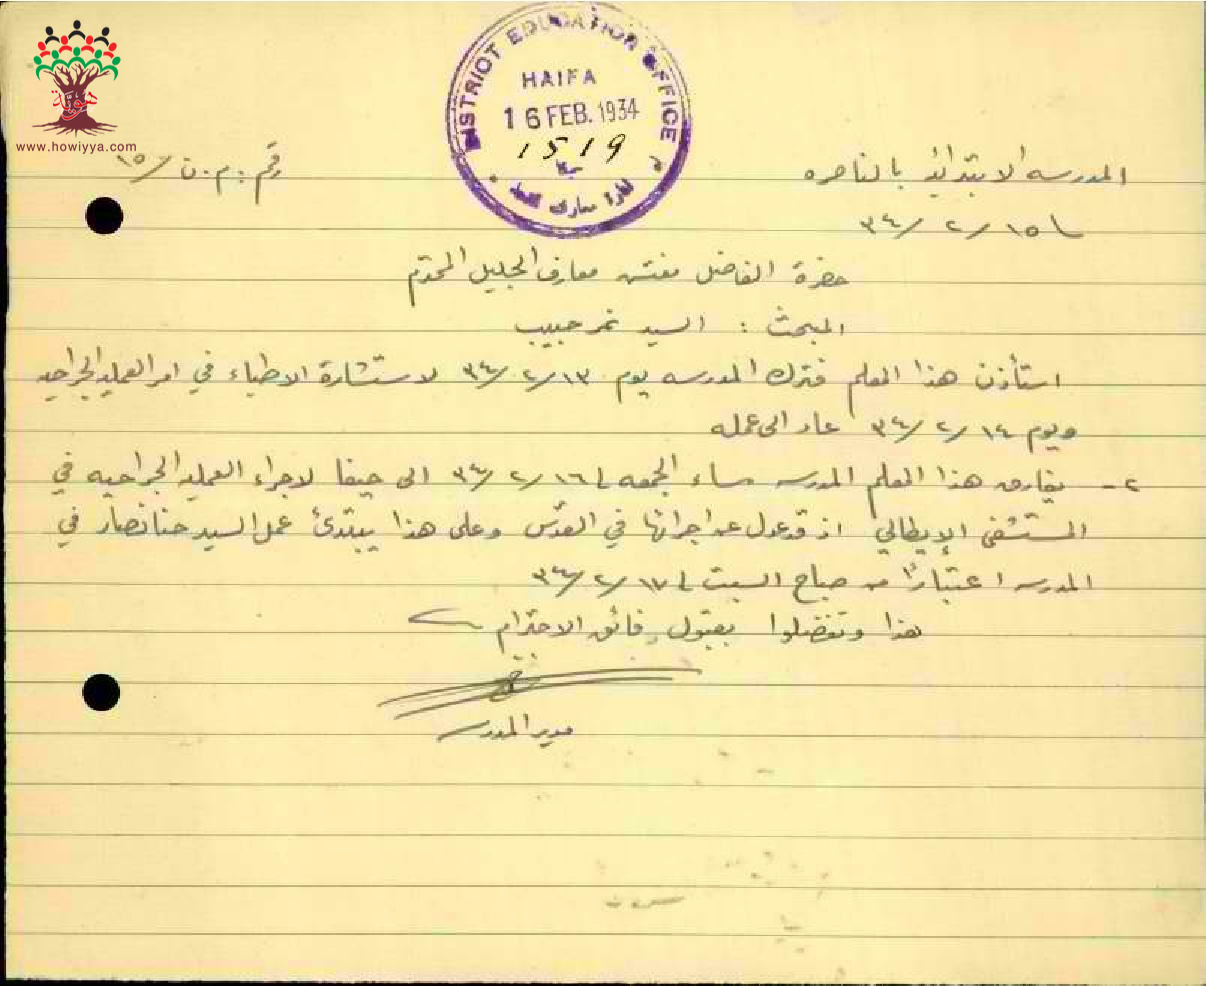 هوية
www.howiyya.com
DISTRICT EDUCATION OFFICE
HAIFA
16 FEB. 1934
1519
حيفا
المدرسه الابتدائيه بالناصره
رقم: م.ن/١٥
١٥/٢/٣٤
حضرة الفاضل مفتش معارف الجليل المحترم
المبحث : السيد نمر حبيب
استأذن هذا المعلم فترك المدرسه يوم ١٣/٢/٣٤ لاستشارة الاطباء في امر العمليه الجراحيه
ويوم ١٤/٢/٣٤ عاد الى عمله
٢- يفارق هذا المعلم المدرسه مساء الجمعه ١٦/٢/٣٤ الى حيفا لاجراء العمليه الجراحيه في
المستشفى الإيطالي اذ قد عدل عن اجرائها في القدس وعلى هذا يبتدئ عمل السيد حنا نصار في
المدرسه اعتبارًا من صباح السبت ١٧/٢/٣٤
هذا وتفضلوا بقبول فائق الاحترام
مدير المدرسه